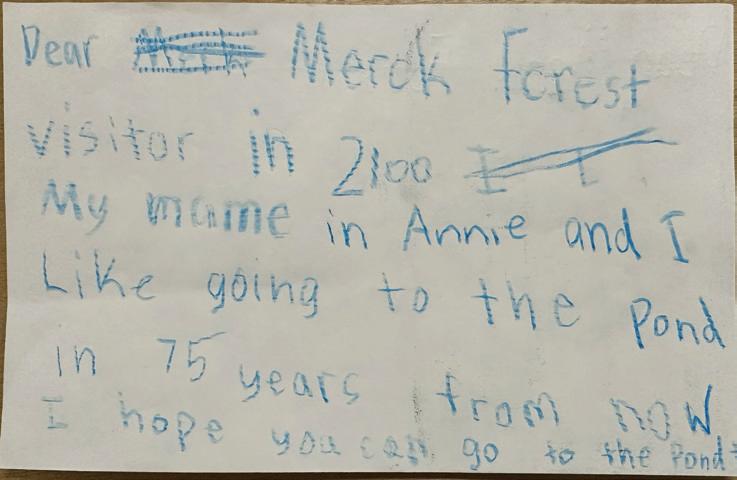 Dear Merck Forest
visitor in 2100 I I
My mame in Annie and I
Like going to the Pond
in 75 years from now
I hope you can go to the Pond